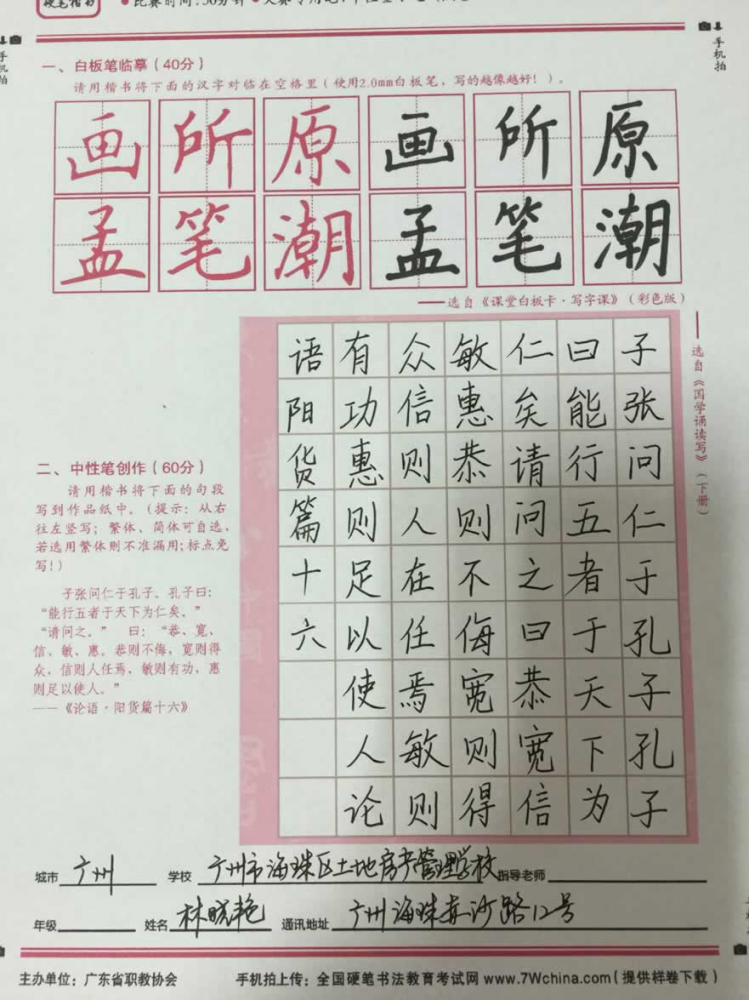 比赛时间：30分钟
手机拍
手机拍
一、白板笔临摹（40分）
请用楷书将下面的汉字对临在空格里（使用2.0mm白板笔，写的越像越好！）。
画所原画所原
孟笔潮孟笔潮
——选自《课堂白板卡·写字课》（彩色版）
——选自《国学诵读写》（下册）
子张问仁于孔子孔子
曰能行五者于天下为
仁矣请问之曰恭宽信
敏惠恭则不侮宽则得
众信则人在任焉敏则
有功惠则足以使人论
语阳货篇十六
二、中性笔创作（60分）
请用楷书将下面的句段
写到作品纸中。（提示：从右
往左竖写；繁体、简体可自选，
若选用繁体则不准漏用；标点免
写！）
子张问仁于孔子。孔子曰：
“能行五者于天下为仁矣。”
“请问之。” 曰：“恭、宽、
信、敏、惠。恭则不侮，宽则得
众，信则人任焉，敏则有功，惠
则足以使人。”
——《论语·阳货篇十六》
城市 广州 学校 广州市海珠区土地房产管理学校 指导老师
年级 姓名 林晓艳 通讯地址 广州海珠 沙路12号
主办单位：广东省职教协会 手机拍上传：全国硬笔书法教育考试网 www.7Wchina.com（提供样卷下载）